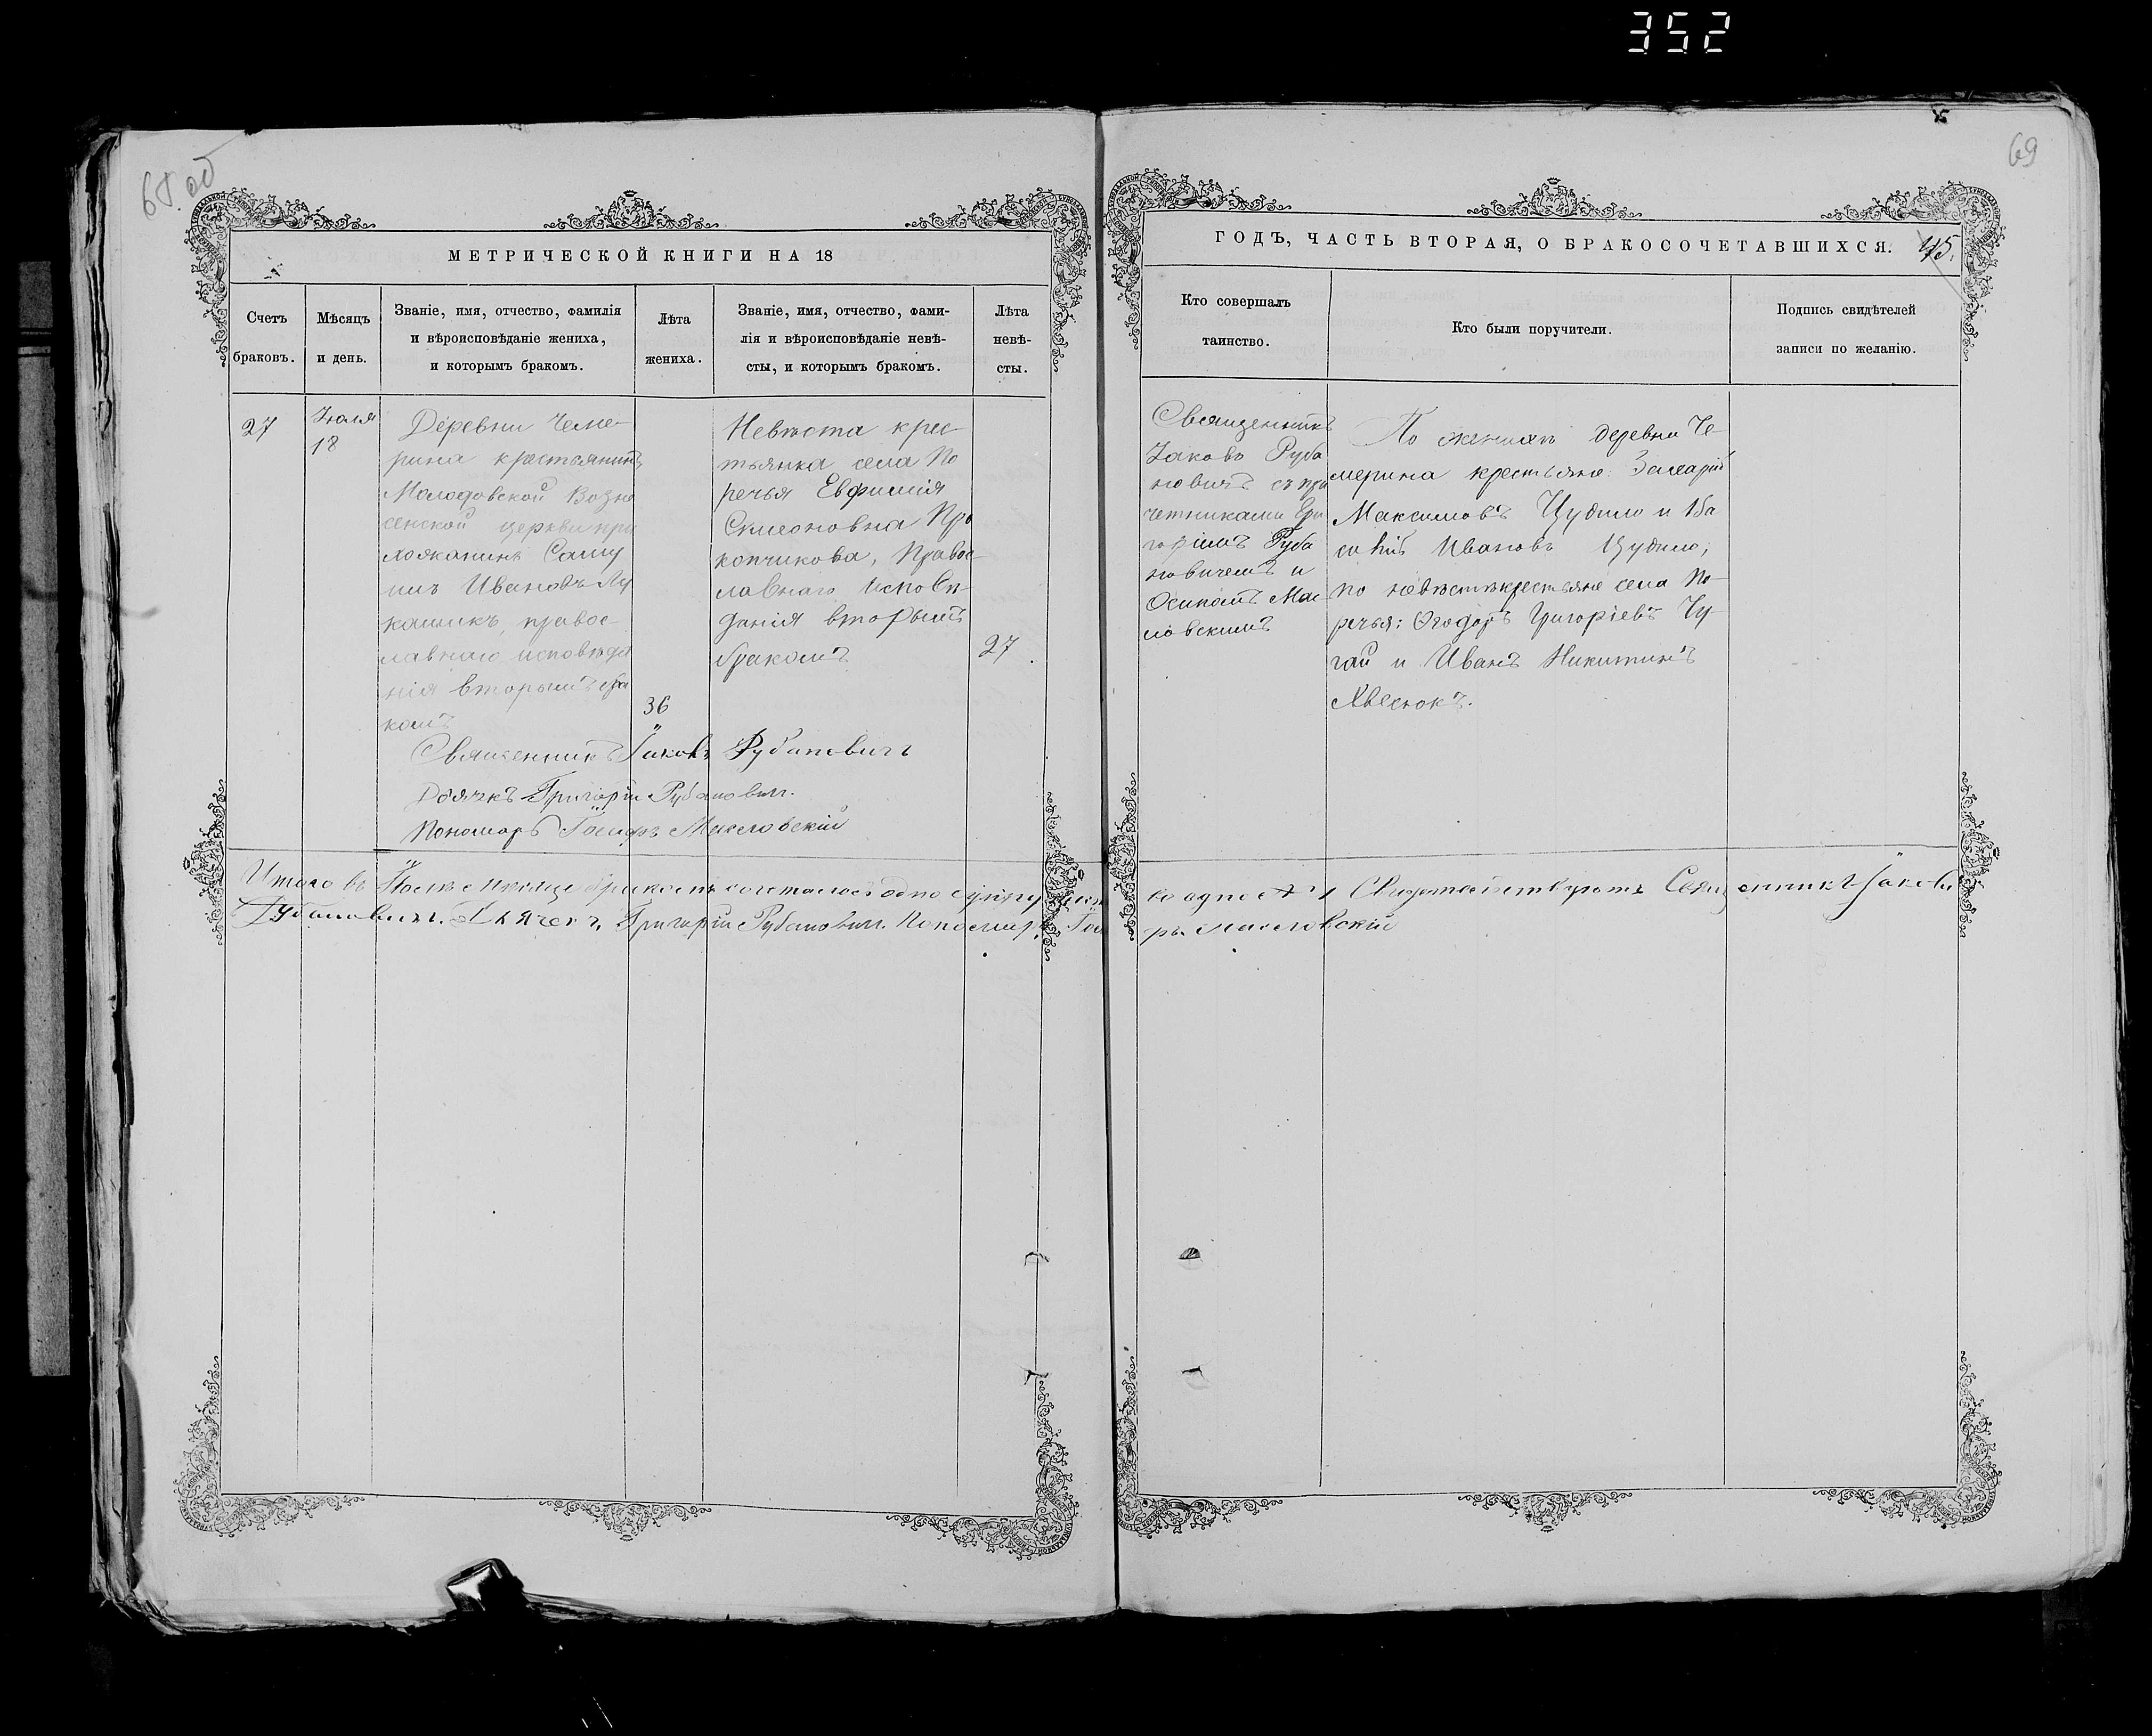 352
68 об
69
МЕТРИЧЕСКОЙ КНИГИ НА 18
Счетъ браковъ.
Мѣсяцъ и день.
Званіе, имя, отчество, фамилія
и вѣроисповѣданіе жениха,
и которымъ бракомъ.
Лѣта жениха.
Званіе, имя, отчество, фами-
лія и вѣроисповѣданіе невѣ-
сты, и которымъ бракомъ.
Лѣта
невѣ-
сты.
27
Іюля
18
Деревни Чеме-
рина крестьянинъ
Молодовской Возне
сенской церкви при
хожанинъ Саму
илъ Ивановъ Лу
кашикъ, правос-
лавнаго исповѣда
нія вторымъ бра
комъ
36
Невѣста крес-
тьянка села По
речья Евфимія
Симеоновна Про
копчикова, Правос-
лавнаго исповѣ-
данія вторымъ
бракомъ
27
Священникъ Іаковъ Рубановичъ
Дьячкъ Григорій Рубановичъ.
Пономарь Іосифъ Масловскій
ГОДЪ, ЧАСТЬ ВТОРАЯ, О БРАКОСОЧЕТАВШИХСЯ.
45.
Кто совершалъ
таинство.
Кто были поручители.
Подпись свидѣтелей
записи по желанію.
Священникъ
Іаковъ Руба
новичъ съ при
четниками Гри
горіемъ Руба
новичемъ и
Осипомъ Мас
ловскимъ
По женихѣ деревни Че-
мерина крестьяне: Захарій
Максимовъ Цудило и Ва
силій Ивановъ Цудило;
по невѣстѣ крестьяне села По-
речья: Ѳеодоръ Григоріевъ Чу-
гай и Иванъ Никитинъ
Хвесюкъ.
Итого въ Іюлѣ мѣсяцѣ бракомъ сочеталось одно супру
во одно № 1 Свидѣтельствуютъ Священникъ Іаковъ
Рубановичъ. Дьячекъ Григорій Рубановичъ. Пономарь Іоси
фъ Масловскій